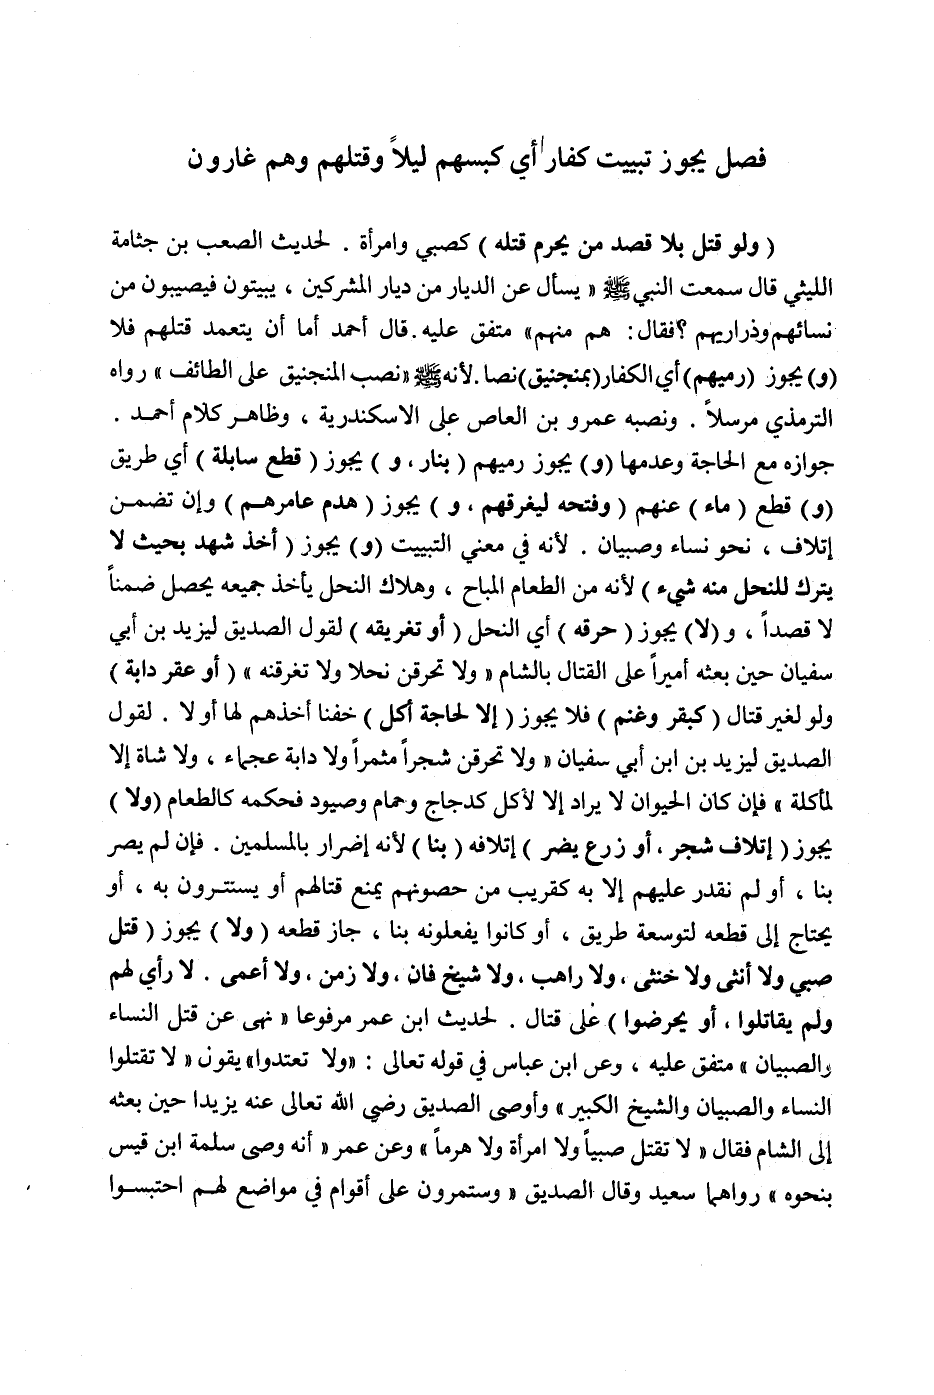 فصل يجوز تبييت كفار أي كبسهم ليلاً وقتلهم وهم غارون
( ولو قتل بلا قصد من يحرم قتله ) كصبي وامرأة . لحديث الصعب بن جثامة
الليثي قال سمعت النبي ﷺ « يسأل عن الديار من ديار المشركين ، يبيتون فيصيبون من
نسائهم وذراريهم ؟ فقال : هم منهم » متفق عليه . قال أحمد أما أن يتعمد قتلهم فلا
(و) يجوز (رميهم) أي الكفار (بمنجنيق) نصا . لأنه ﷺ « نصب المنجنيق على الطائف » رواه
الترمذي مرسلاً . ونصبه عمرو بن العاص على الاسكندرية ، وظاهر كلام أحمد .
جوازه مع الحاجة وعدمها (و) يجوز رميهم ( بنار ، و ) يجوز ( قطع سابلة ) أي طريق
(و) قطع ( ماء ) عنهم ( وفتحه ليغرقهم ، و ) يجوز ( هدم عامرهم ) وإن تضمن
إتلاف ، نحو نساء وصبيان . لأنه في معني التبييت (و) يجوز ( أخذ شهد بحيث لا
يترك للنحل منه شيء ) لأنه من الطعام المباح ، وهلاك النحل يأخذ جميعه يحصل ضمناً
لا قصداً ، و (لا) يجوز ( حرقه ) أي النحل ( أو تغريقه ) لقول الصديق ليزيد بن أبي
سفيان حين بعثه أميراً على القتال بالشام « ولا تحرقن نحلا ولا تغرقنه » ( أو عقر دابة )
ولو لغير قتال ( كبقر وغنم ) فلا يجوز ( إلا لحاجة أكل ) خفنا أخذهم لها أو لا . لقول
الصديق ليزيد بن ابن أبي سفيان « ولا تحرقن شجراً مثمراً ولا دابة عجماء ، ولا شاة إلا
لمأكلة » فإن كان الحيوان لا يراد إلا لأكل كدجاج وحمام وصيود فحكمه كالطعام (ولا )
يجوز ( إتلاف شجر ، أو زرع يضر ) إتلافه ( بنا ) لأنه إضرار بالمسلمين . فإن لم يصر
بنا ، أو لم نقدر عليهم إلا به كقريب من حصونهم يمنع قتالهم أو يستترون به ، أو
يحتاج إلى قطعه لتوسعة طريق ، أو كانوا يفعلونه بنا ، جاز قطعه ( ولا ) يجوز ( قتل
صبي ولا أنثى ولا خنثى ، ولا راهب ، ولا شيخ فان ، ولا زمن ، ولا أعمى . لا رأي لهم
ولم يقاتلوا ، أو يحرضوا ) على قتال . لحديث ابن عمر مرفوعا « نهى عن قتل النساء
والصبيان » متفق عليه ، وعن ابن عباس في قوله تعالى : «ولا تعتدوا» يقون « لا تقتلوا
النساء والصبيان والشيخ الكبير » وأوصى الصديق رضي الله تعالى عنه يزيدا حين بعثه
إلى الشام فقال « لا تقتل صبياً ولا امرأة ولا هرماً » وعن عمر « أنه وصى سلمة ابن قيس
بنحوه » رواهما سعيد وقال الصديق « وستمرون على أقوام في مواضع لهم احتبسوا